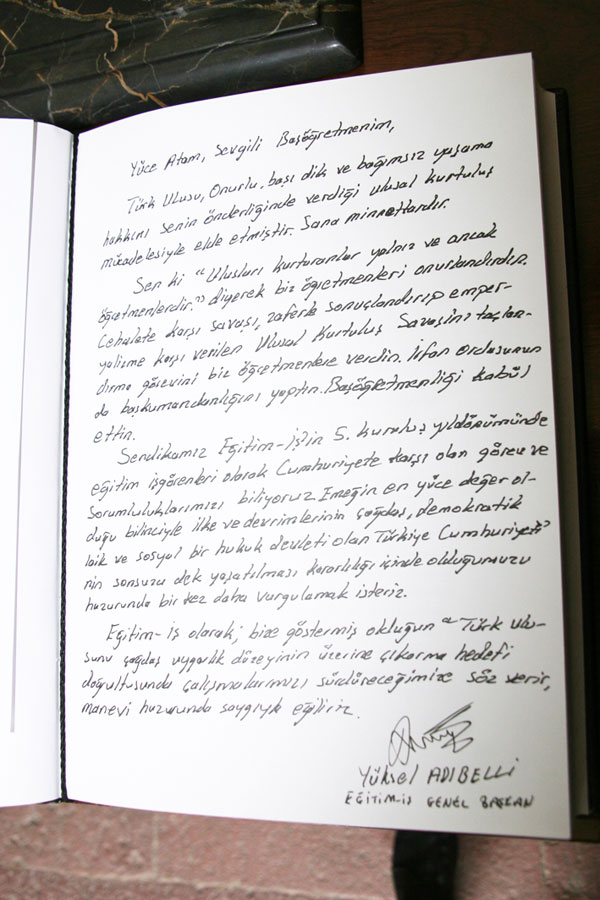 Yüce Atam, Sevgili Başöğretmenim,
Türk Ulusu, Onurlu, başı dik ve bağımsız yaşama
hakkını senin önderliğinde verdiği ulusal kurtuluş
mücadelesiyle elde etmiştir. Sana minnettardır.
Sen ki "Ulusları kurtaranlar yalnız ve ancak
öğretmenlerdir." diyerek biz öğretmenleri onurlandırdın.
Cehalete karşı savaşı, zaferle sonuçlandırıp emper-
yalizme karşı verilen Ulusal Kurtuluş Savaşını taçlan-
dırma görevini biz öğretmenlere verdin. İrfan ordusunun
da başkumandanlığını yaptın. Başöğretmenliği kabül
ettin.
Sendikamız Eğitim-iş'in 5. kuruluş yıldönümünde
eğitim işgörenleri olarak Cumhuriyete karşı olan görev ve
Sorumluluklarımızı biliyoruz. Emeğin en yüce değer ol-
duğu bilinciyle ilke ve devrimlerinin çağdaş, demokratik
laik ve sosyal bir hukuk devleti olan Türkiye Cumhuriyeti'
nin sonsuza dek yaşatılması kararlılığı içinde olduğumuzu
huzurunda bir kez daha vurgulamak isteriz.
Eğitim-iş olarak; bize göstermiş okluğun "Türk ulu-
sunu çağdaş uygarlık düzeyinin üzerine çıkarma hedefi
doğrultusunda çalışmalarımızı sürdüreceğimize söz verir,
manevi huzurunda saygıyla eğiliriz.
Yüksel ADIBELLİ
EĞİTİM-İŞ GENEL BAŞKAN